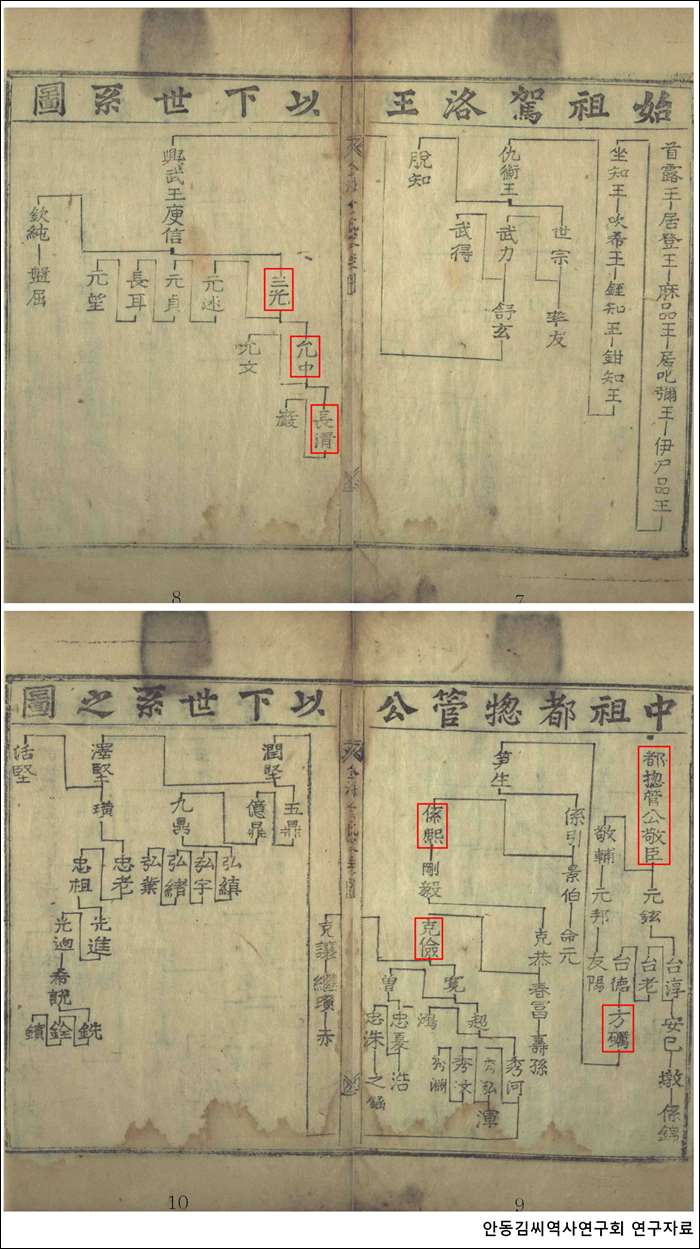 始祖駕洛王以下世系圖
首露王 居登王 麻品王 居叱彌王 伊尸品王
坐知王 吹希王 銍知王 鉗知王
仇衝王
世宗
率友
武力
武得
舒玄
脫知
興武王庾信
三光
允中
允文
長淸
巖
元述
元貞
長耳
元望
欽純 盤屈
7
8
中祖都摠管公以下世系之圖
都摠管公敬臣
元鉉
敬輔 元邦 友陽
台淳 安巳 墩 係錦
台老
台德
方礪
笋生
係引 景伯 命元
係熙
剛毅
克恭 春富 壽孫
克儉
寬
超
秀河
秀弘
渾
秀汶
秀淵
鴻
曾
忠憂 浩
忠洙 之
克讓 繼瓊 赤
潤堅
五鼎
億鼎
九鼎
弘縝
弘宇
弘緖
弘業
澤堅
璜
忠老
忠祖
光進
光迪
希說
銑
銓
鑌
恬堅
9
10
안동김씨역사연구회 연구자료